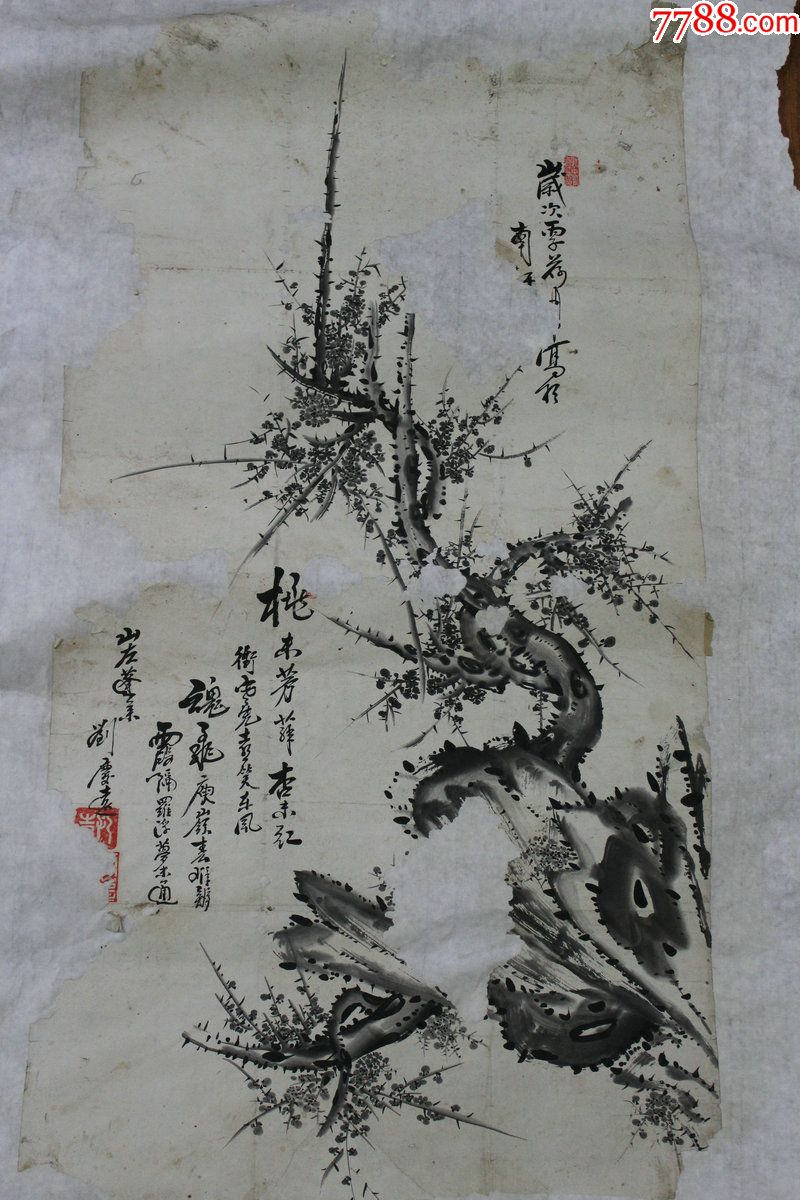 7788.com
歲次雪荷月寫於
南
桃未芳菲杏未紅
衝寒先喜笑東風
魂飛庾嶺春難辨
霞隔羅浮夢未通
山左蓬萊
劉慶